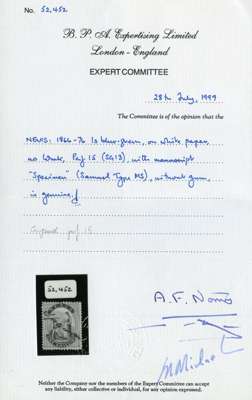 No. 52,452
B. P. A. Expertising Limited
London - England
EXPERT COMMITTEE
28th July, 1999
The Committee is of the opinion that the
NEVIS: 1866-76 1s blue-green, on white paper,
no wmk, Perf 15 (SG13), with manuscript
"Specimen" (Samuel Type MS), without gum,
is genuine.
perf 15
52,452
A.F. Norris
Neither the Company nor the members of the Expert Committee can accept
any liability, either collective or individual, for any opinion expressed.